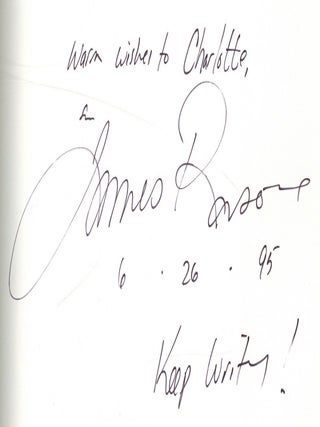 Warm wishes to Charlotte,
James Ransome
6 . 26 . 95
Keep Writing!